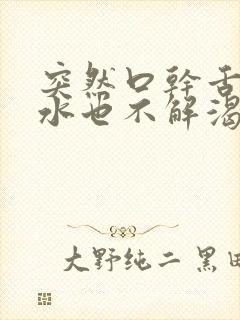 突然口幹舌
水也不解渴
大野纯二 黑田